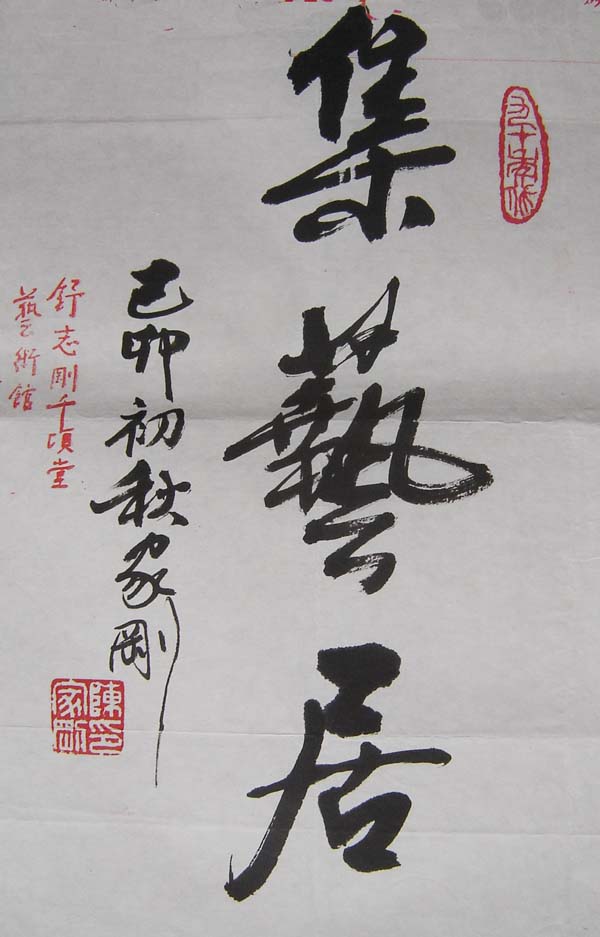 集藝居
己卯初秋家剛
陳家剛印
舒志剛千頃堂
藝術館